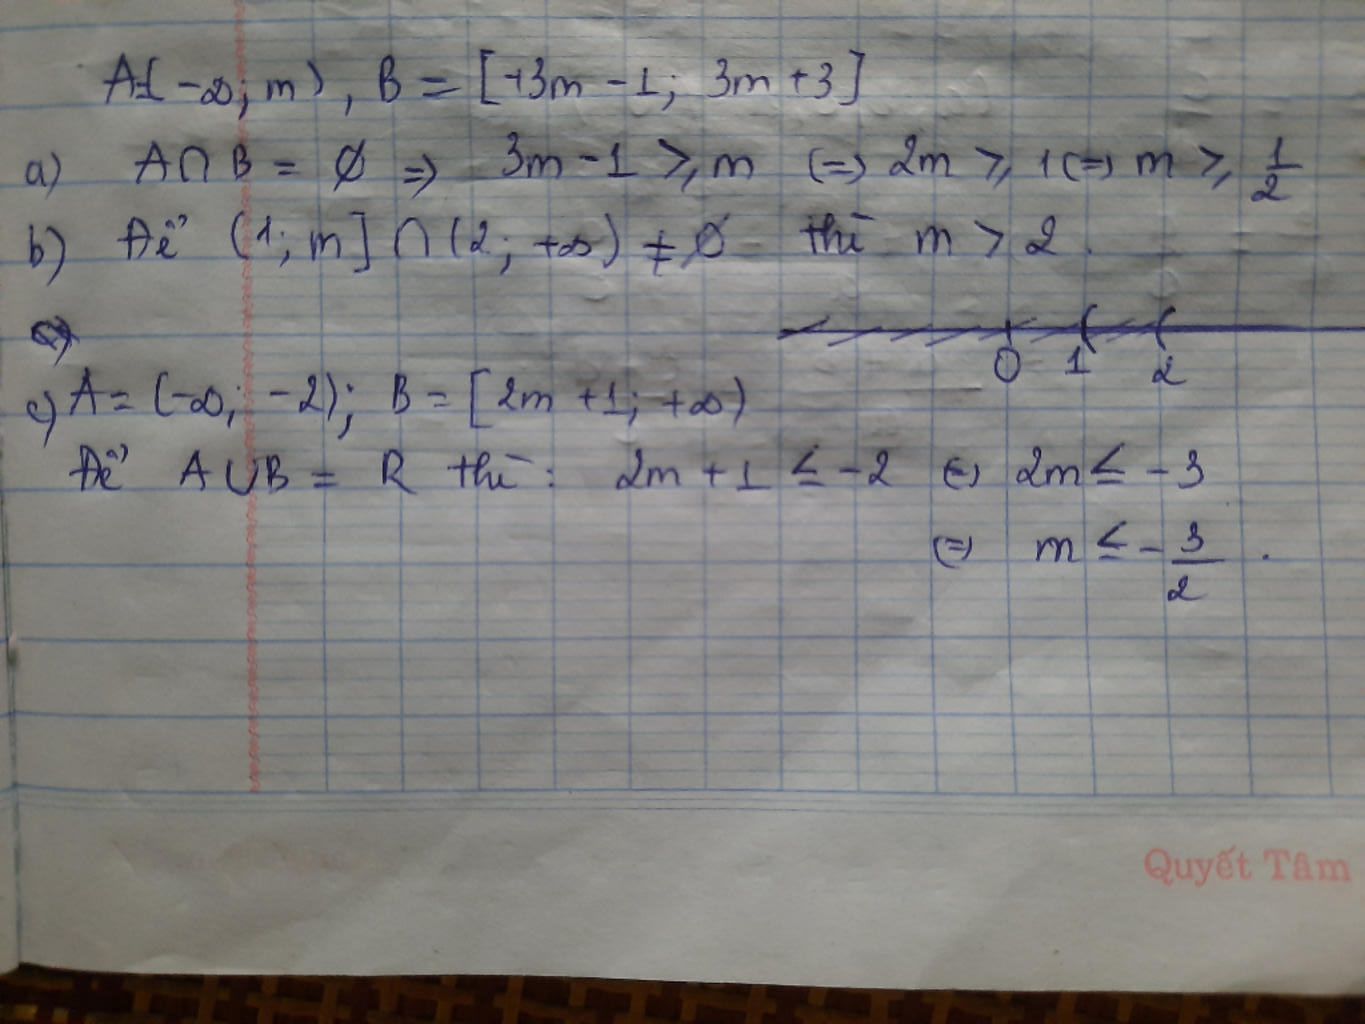 A=(-∞; m), B = [+3m - 1; 3m + 3]
a) A∩B = ∅ => 3m - 1 ≥ m (=) 2m ≥ 1 (=) m ≥ 1/2
b) Để (1; m] ∩ (2; +∞) ≠ ∅ thì m > 2.
0 1 2
c) A = (-∞; -2); B = [2m + 1; +∞)
Để A∪B = R thì: 2m + 1 ≤ -2 (=) 2m ≤ -3
(=) m ≤ - 3/2.
Quyết Tâm